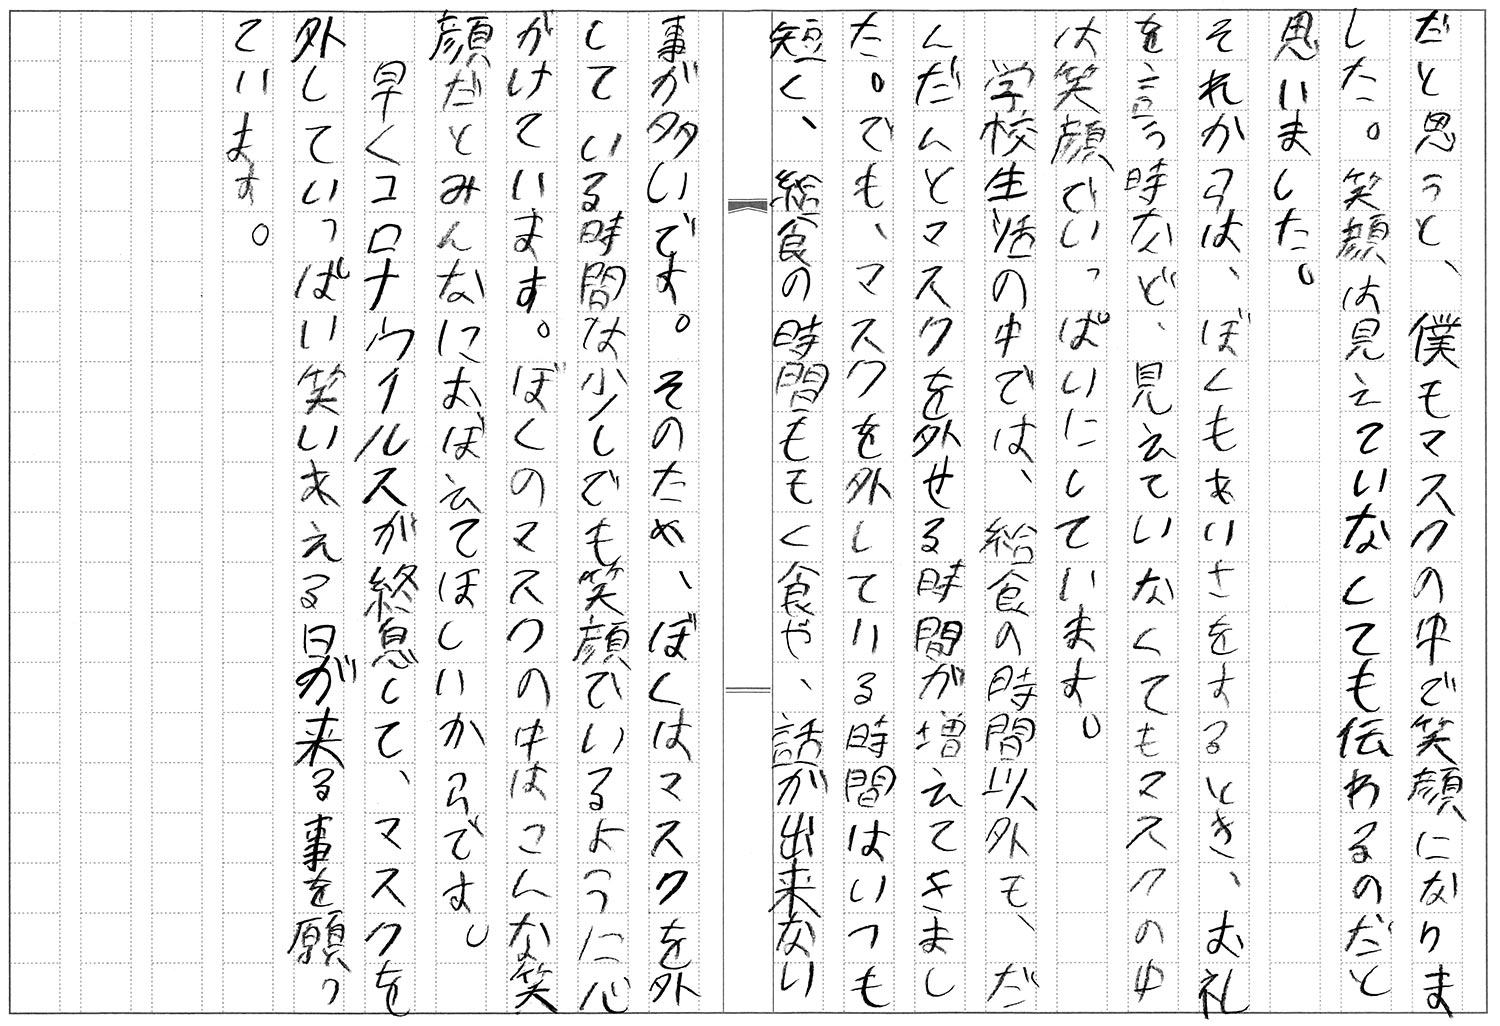 だと思うと、僕もマスクの中で笑顔になりま
した。笑顔は見えていなくても伝わるのだと
思いました。
それからは、ぼくもあいさをするとき、お礼
を言う時など、見えていなくてもマスクの中
は笑顔でいっぱいにしています。
学校生活の中では、給食の時間以外も、だ
んだんとマスクを外せる時間が増えてきまし
た。でも、マスクを外している時間はいつも
短く、給食の時間ももく食や、話が出来ない
事が多いです。そのため、ぼくはマスクを外
している時間な少しでも笑顔でいるように心
がけています。ぼくのマスクの中はこんな笑
顔だとみんなにおぼえてほしいからです。
早くコロナウイルスが終息して、マスクを
外していっぱい笑いあえる日が来る事を願っ
ています。